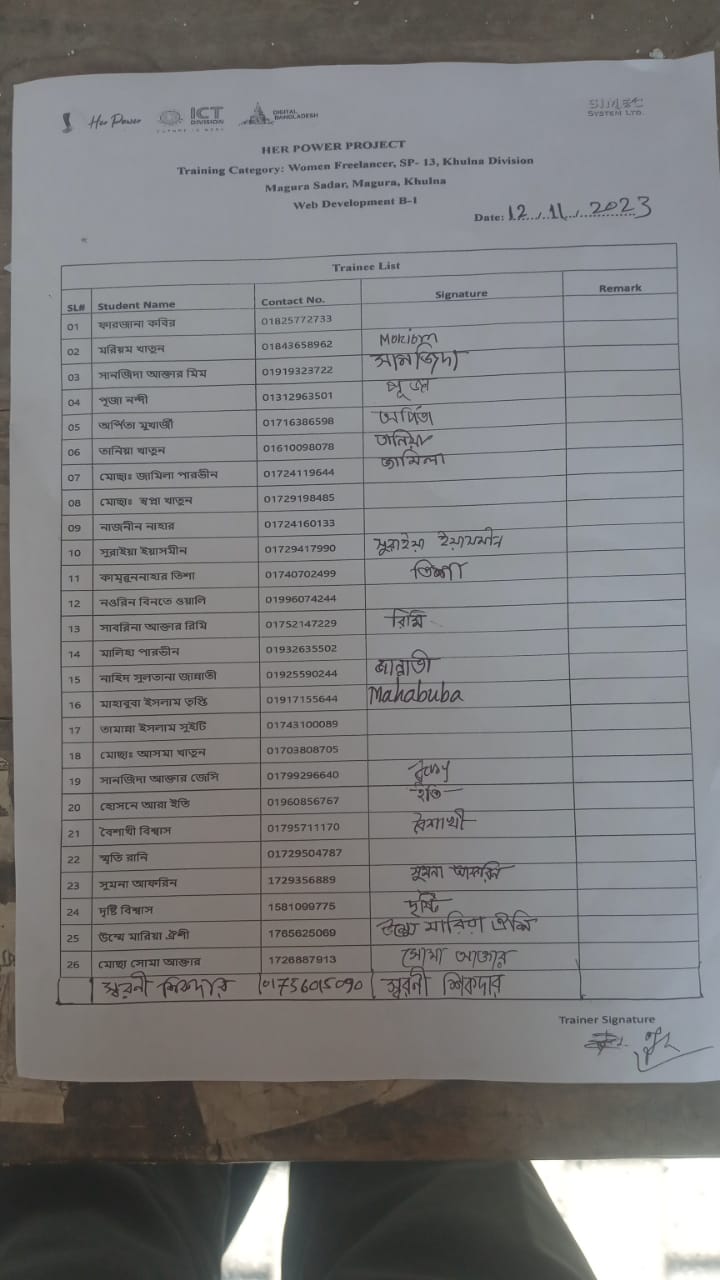 Her Power ICT DIVISION DIGITAL BANGLADESH
SYSTEM LTD.
HER POWER PROJECT
Training Category: Women Freelancer, SP- 13, Khulna Division
Magura Sadar, Magura, Khulna
Web Development B-1
Date: 12.11.2023
Trainee List
SL# Student Name Contact No. Signature Remark
01 ফারজানা কবির 01825772733
02 মরিয়ম খাতুন 01843658962
03 সানজিদা আক্তার মিম 01919323722 সানজিদা
04 পূজা নন্দী 01312963501 পূজা
05 অর্পিতা মুখার্জী 01716386598 অর্পিতা
06 তানিয়া খাতুন 01610098078 তানিয়া
07 মোছাঃ জামিলা পারভীন 01724119644 জামিলা
08 মোছাঃ স্বপ্না খাতুন 01729198485
09 নাজনীন নাহার 01724160133
10 সুরাইয়া ইয়াসমীন 01729417990 সুরাইয়া ইয়াসমীন
11 কামরুননাহার তিশা 01740702499 তিশা
12 নওরিন বিনতে ওয়ালি 01996074244
13 সাবরিনা আক্তার রিমি 01752147229 রিমি
14 মালিহা পারভীন 01932635502
15 নাহিদ সুলতানা জান্নাতী 01925590244 জান্নাতী
16 মাহাবুবা ইসলাম তৃপ্তি 01917155644 Mahabuba
17 তামান্না ইসলাম সুইটি 01743100089
18 মোছাঃ আসমা খাতুন 01703808705
19 সানজিদা আক্তার জেসি 01799296640
20 হোসনে আরা ইতি 01960856767 ইতি
21 বৈশাখী বিশ্বাস 01795711170 বৈশাখী
22 স্মৃতি রানি 01729504787
23 সুমনা আফরিন 1729356889 সুমনা আফরিন
24 দৃষ্টি বিশ্বাস 1581099775 দৃষ্টি
25 উম্মে মারিয়া ঐশী 1765625069 উম্মে মারিয়া ঐশি
26 মোছা সোমা আক্তার 1726887913 সোমা আক্তার
স্বরনী শিকদার 01756015090 স্বরনী শিকদার
Trainer Signature